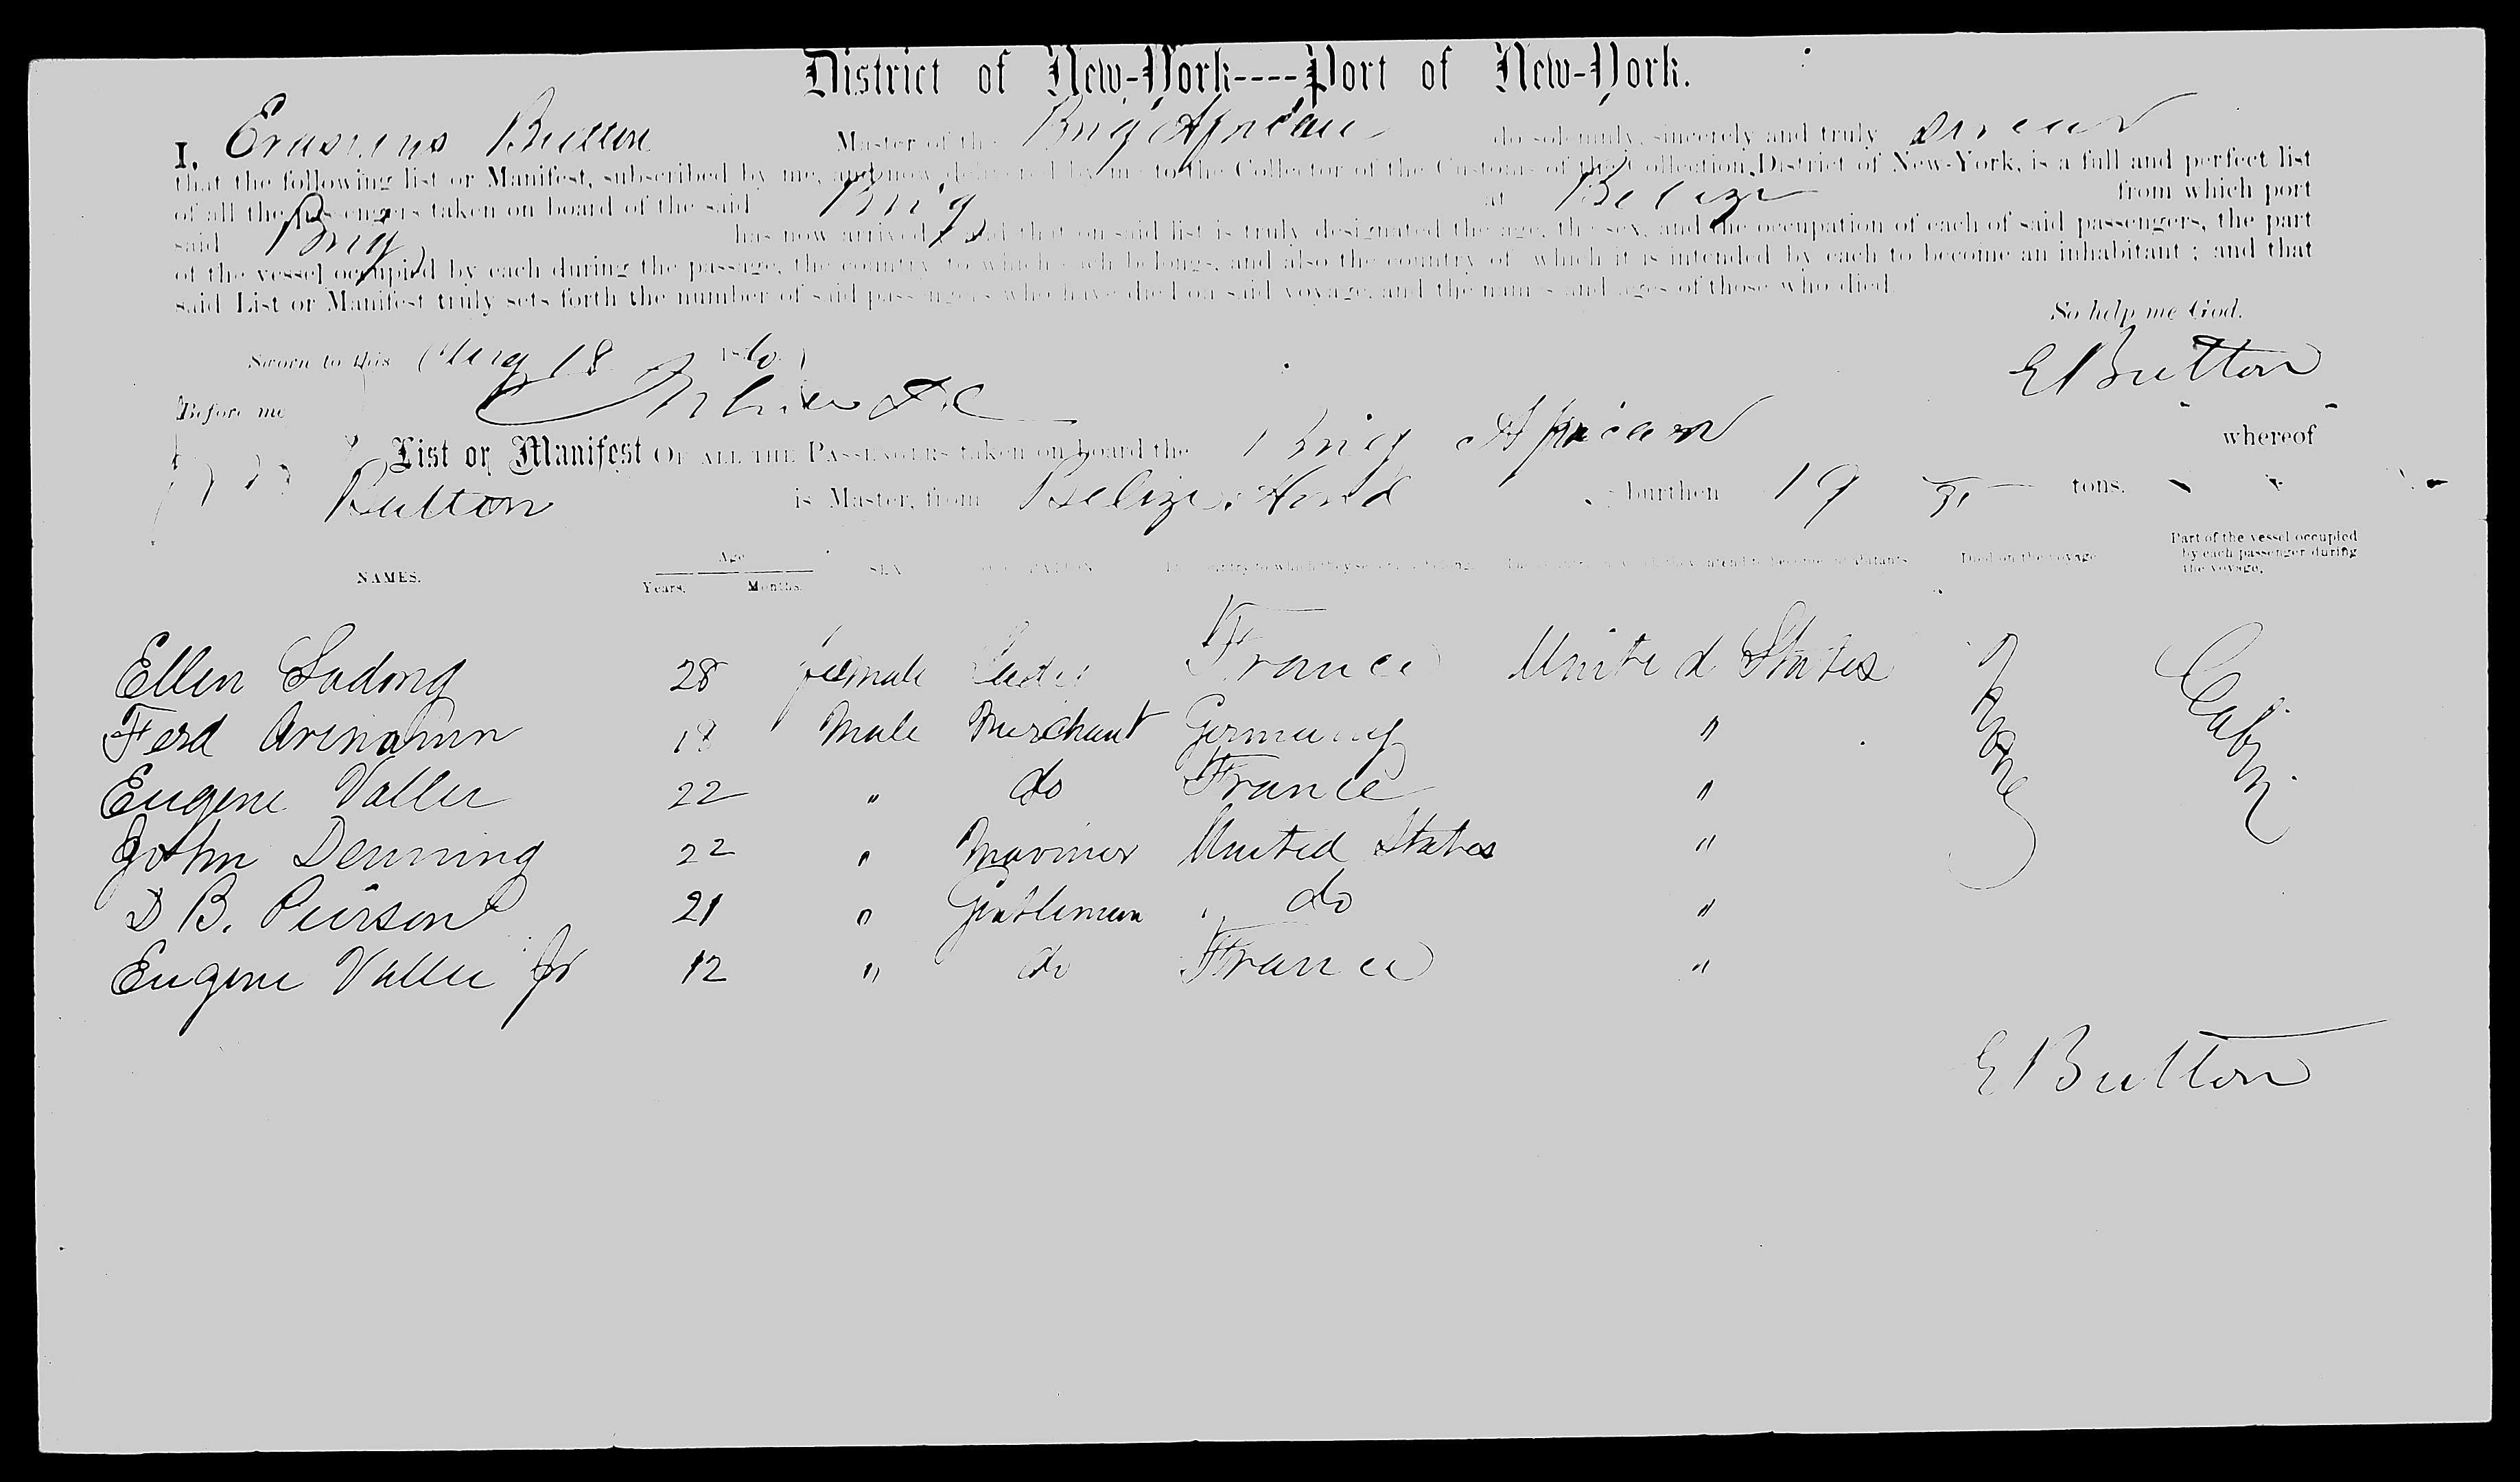 District of New-York----Port of New-York.
I, Erasmus Button Master of the Brig African do solemnly, sincerely and truly swear
that the following list or Manifest, subscribed by me, and now delivered by me to the Collector of the Customs of the Collection District of New-York, is a full and perfect list
of all the passengers taken on board of the said Brig at Belize from which port
said Brig has now arrived; and that on said list is truly designated the age, the sex, and the occupation of each of said passengers, the part
of the vessel occupied by each during the passage, the country to which each belongs, and also the country of which it is intended by each to become an inhabitant; and that
said List or Manifest truly sets forth the number of said passengers who have died on said voyage, and the names and ages of those who died.
So help me God.
Sworn to this Aug 18
E Button
Before me
List or Manifest OF ALL THE PASSENGERS taken on board the Brig African whereof
Button is Master, from Belize Hond burthen 19 tons.
NAMES. Age Years. Months. SEX OCCUPATION The country to which they severally belong. The country in which they intend to become inhabitants Died on the voyage Part of the vessel occupied by each passenger during the voyage.
Ellen 28 female France United States None Cabin
Ferd 18 Male Merchant Germany "
Eugene Vallee 22 " do France "
John Denning 22 " Mariner United States "
D B. Peirson 21 " Gentleman do "
Eugene Vallee Jr 12 " do France "
E Button